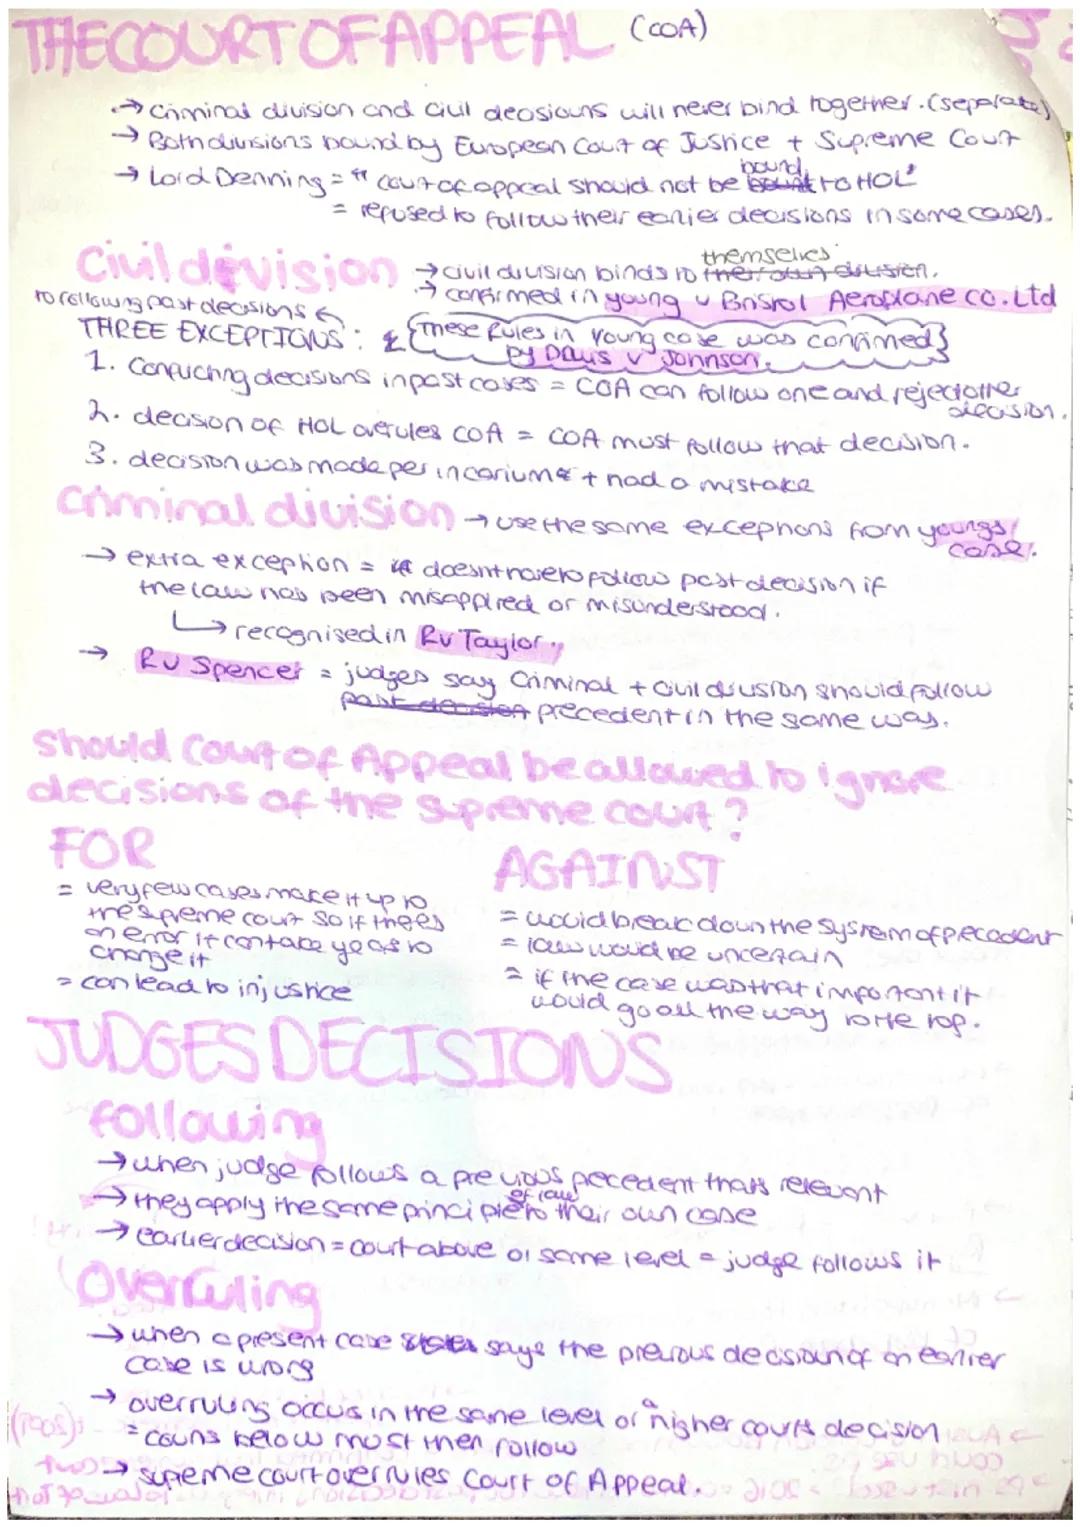 THE COURT OF APPEAL (COA)
→ Criminal division and civil decisions will never bind together. (separate)
→ Both divisions bound by European Court of Justice + Supreme Court
→ Lord Denning = "court of appeal should not be bound to HOL"
= refused to follow their earlier decisions in some cases.
Civil division → civil division binds to themselves.
→ confirmed in young v Bristol Aeroplane co. Ltd
to following past decisions
THREE EXCEPTIONS: {These Rules in Young case was confirmed}
by Davis v Johnson.
1. Conflicting decisions in past cases = COA can follow one and reject other
decision.
2. decision of HOL overules COA = COA must follow that decision.
3. decision was made per incarium + had a mistake
Criminal division → use the same exceptions from youngs
case.
→ extra exception = doesnt have to follow past decision if
the law has been misapplied or misunderstood.
recognised in R v Taylor.
→ R v Spencer = judges say Criminal + Civil division should follow
past decision precedent in the same way.
Should Court of Appeal be allowed to ignore
decisions of the supreme court?
FOR
= very few cases make it up to
the supreme court so if theres
an error it can take years to
change it
= can lead to injustice
AGAINST
= would break down the system of precedent
= law would be uncertain
= if the case was that important it
would go all the way to the top.
JUDGES DECISIONS
following
→ when judge follows a previous precedent thats relevant
→ they apply the same principle of law to their own case
→ earlier decision = court above or same level = judge follows it
Overruling
→ when a present case says the previous decision of an earlier
case is wrong
→ overruling occurs in the same level or a higher courts decision
= courts below must then follow
→ supreme court overrules Court of Appeal.